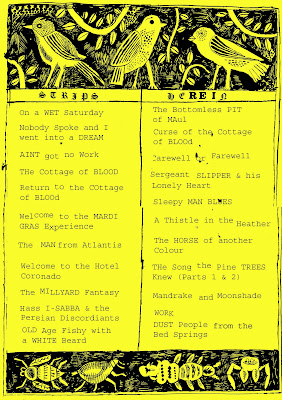 STRIPS
On a WET Saturday
Nobody Spoke and I
went into a DREAM
AINT got no Work
THe Cottage of BLOOD
Return to the COttage
of BLOOd
Welcome to the MARDI
GRAS Experience
The MAN from Atlantis
Welcome to the Hotel
Coronado
The MiLLYARD Fantasy
Hass I-SABBA & the
Persian Discordiants
OLD Age Fishy with
a WHITE Beard
HEREIN
The Bottomless PIT
of MAul
Curse of the Cottage
of BLOOd
Carewell or Farewell
Sergeant SLIPPER & his
Lonely Heart
Sleepy MAN BLUES
A Thistle in the Heather
The HORSE of another
Colour
THe Song the Pine TREES
Knew (Parts 1 & 2)
Mandrake and Moonshade
WORK
DUST People from the
Bed Springs